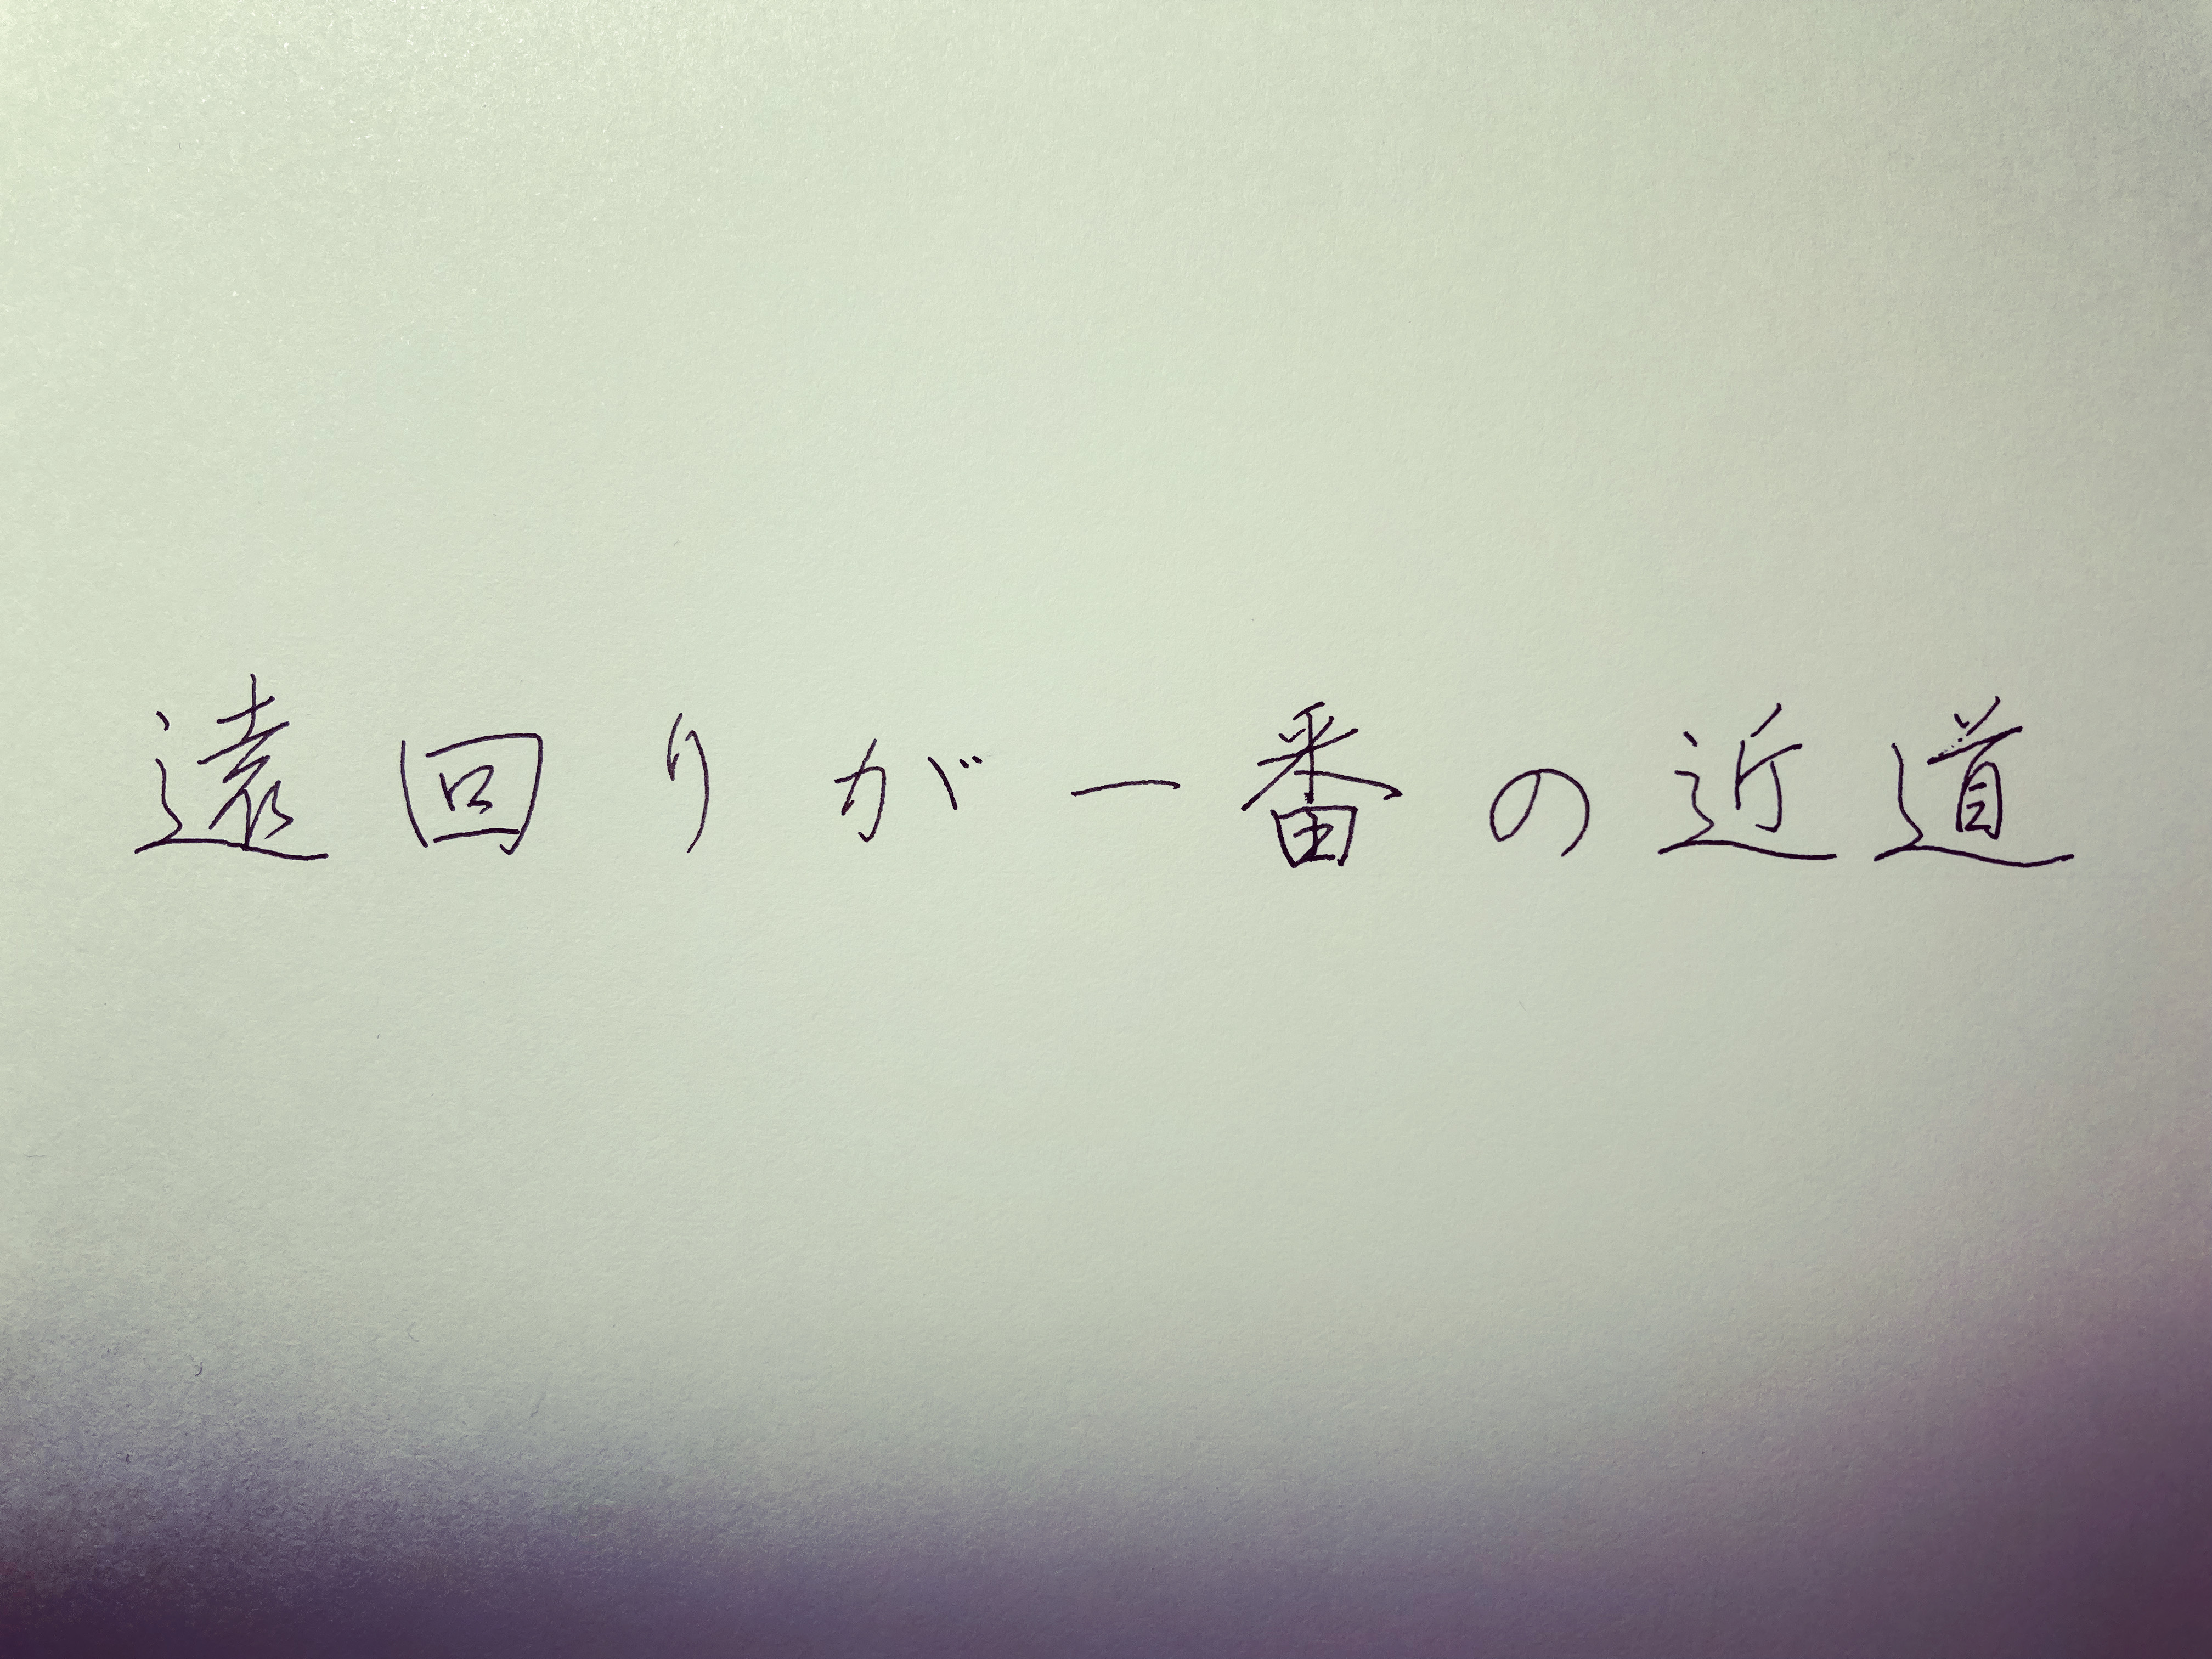 遠回りが一番の近道